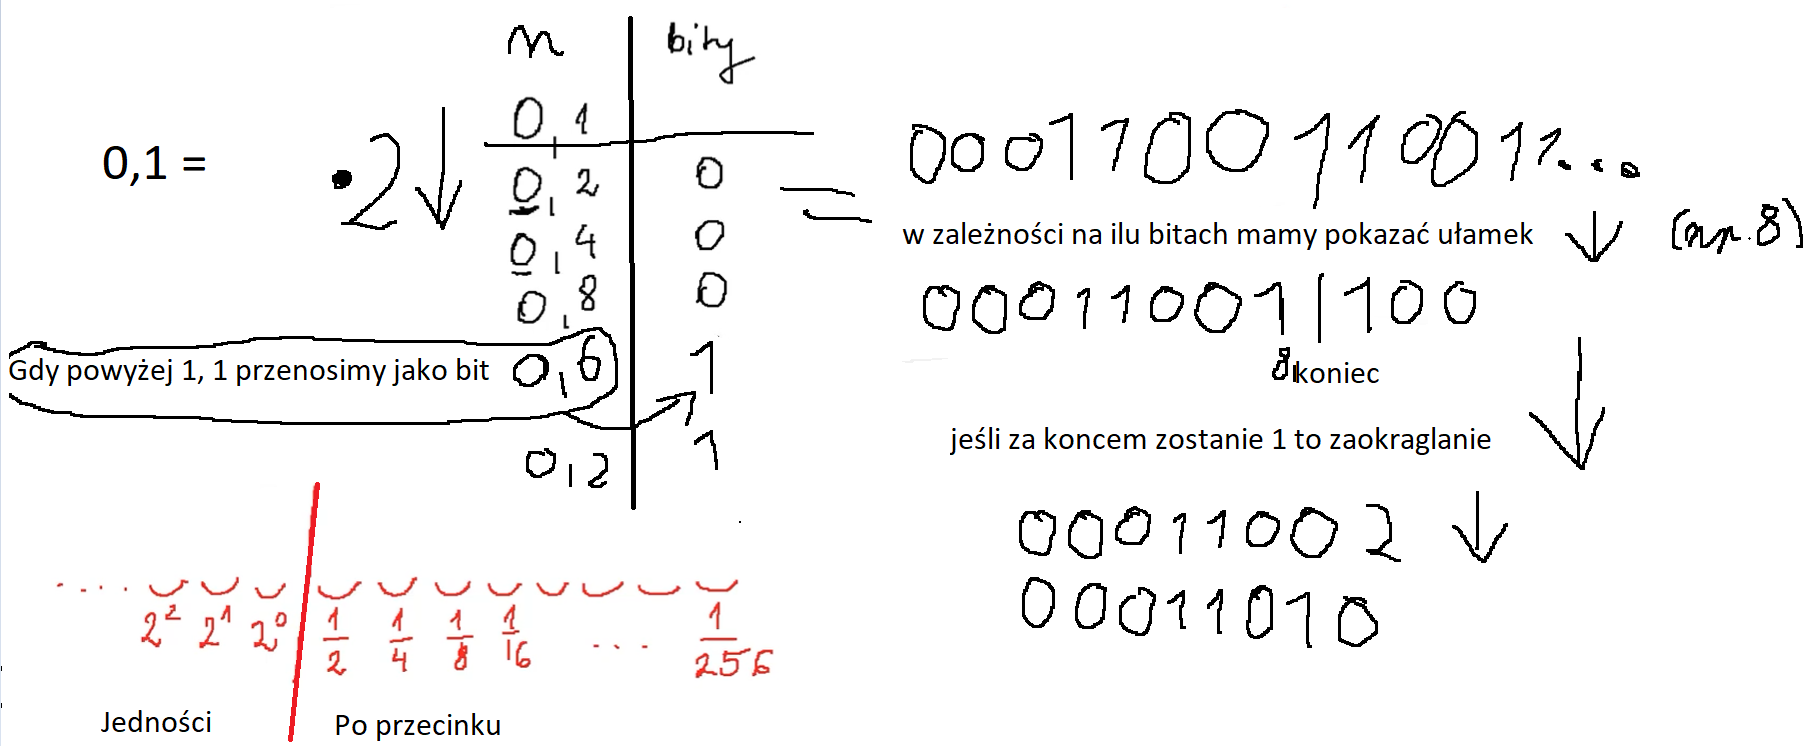 n bity
0,1
0,1 = •2
0,2 0
0,4 0
0,8 0
Gdy powyżej 1, 1 przenosimy jako bit 0,6 1
0,2 1
= 0001100110011...
w zależności na ilu bitach mamy pokazać ułamek (np. 8)
00011001|100
8 koniec
jeśli za koncem zostanie 1 to zaokraglanie
00011002
00011010
.... 2² 2¹ 2⁰ 1/2 1/4 1/8 1/16 ... 1/256
Jedności Po przecinku